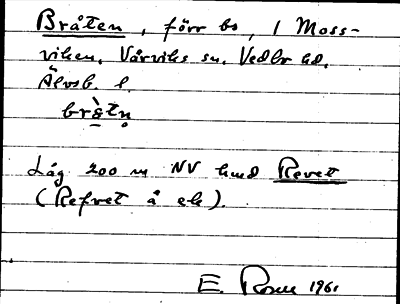 Bråten, förr bs, i Moss-
viken. Vårviks sn. Vedbo hd.
Älvsb. l.
brὰtṇ
Låg 200 m NV hmd Revet
(Refvet å ek).
E. Rosén 1961